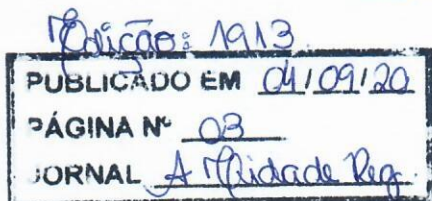 Edição: 1913
PUBLICADO EM 04/09/20
PÁGINA Nº 03
JORNAL A Unidade Reg.